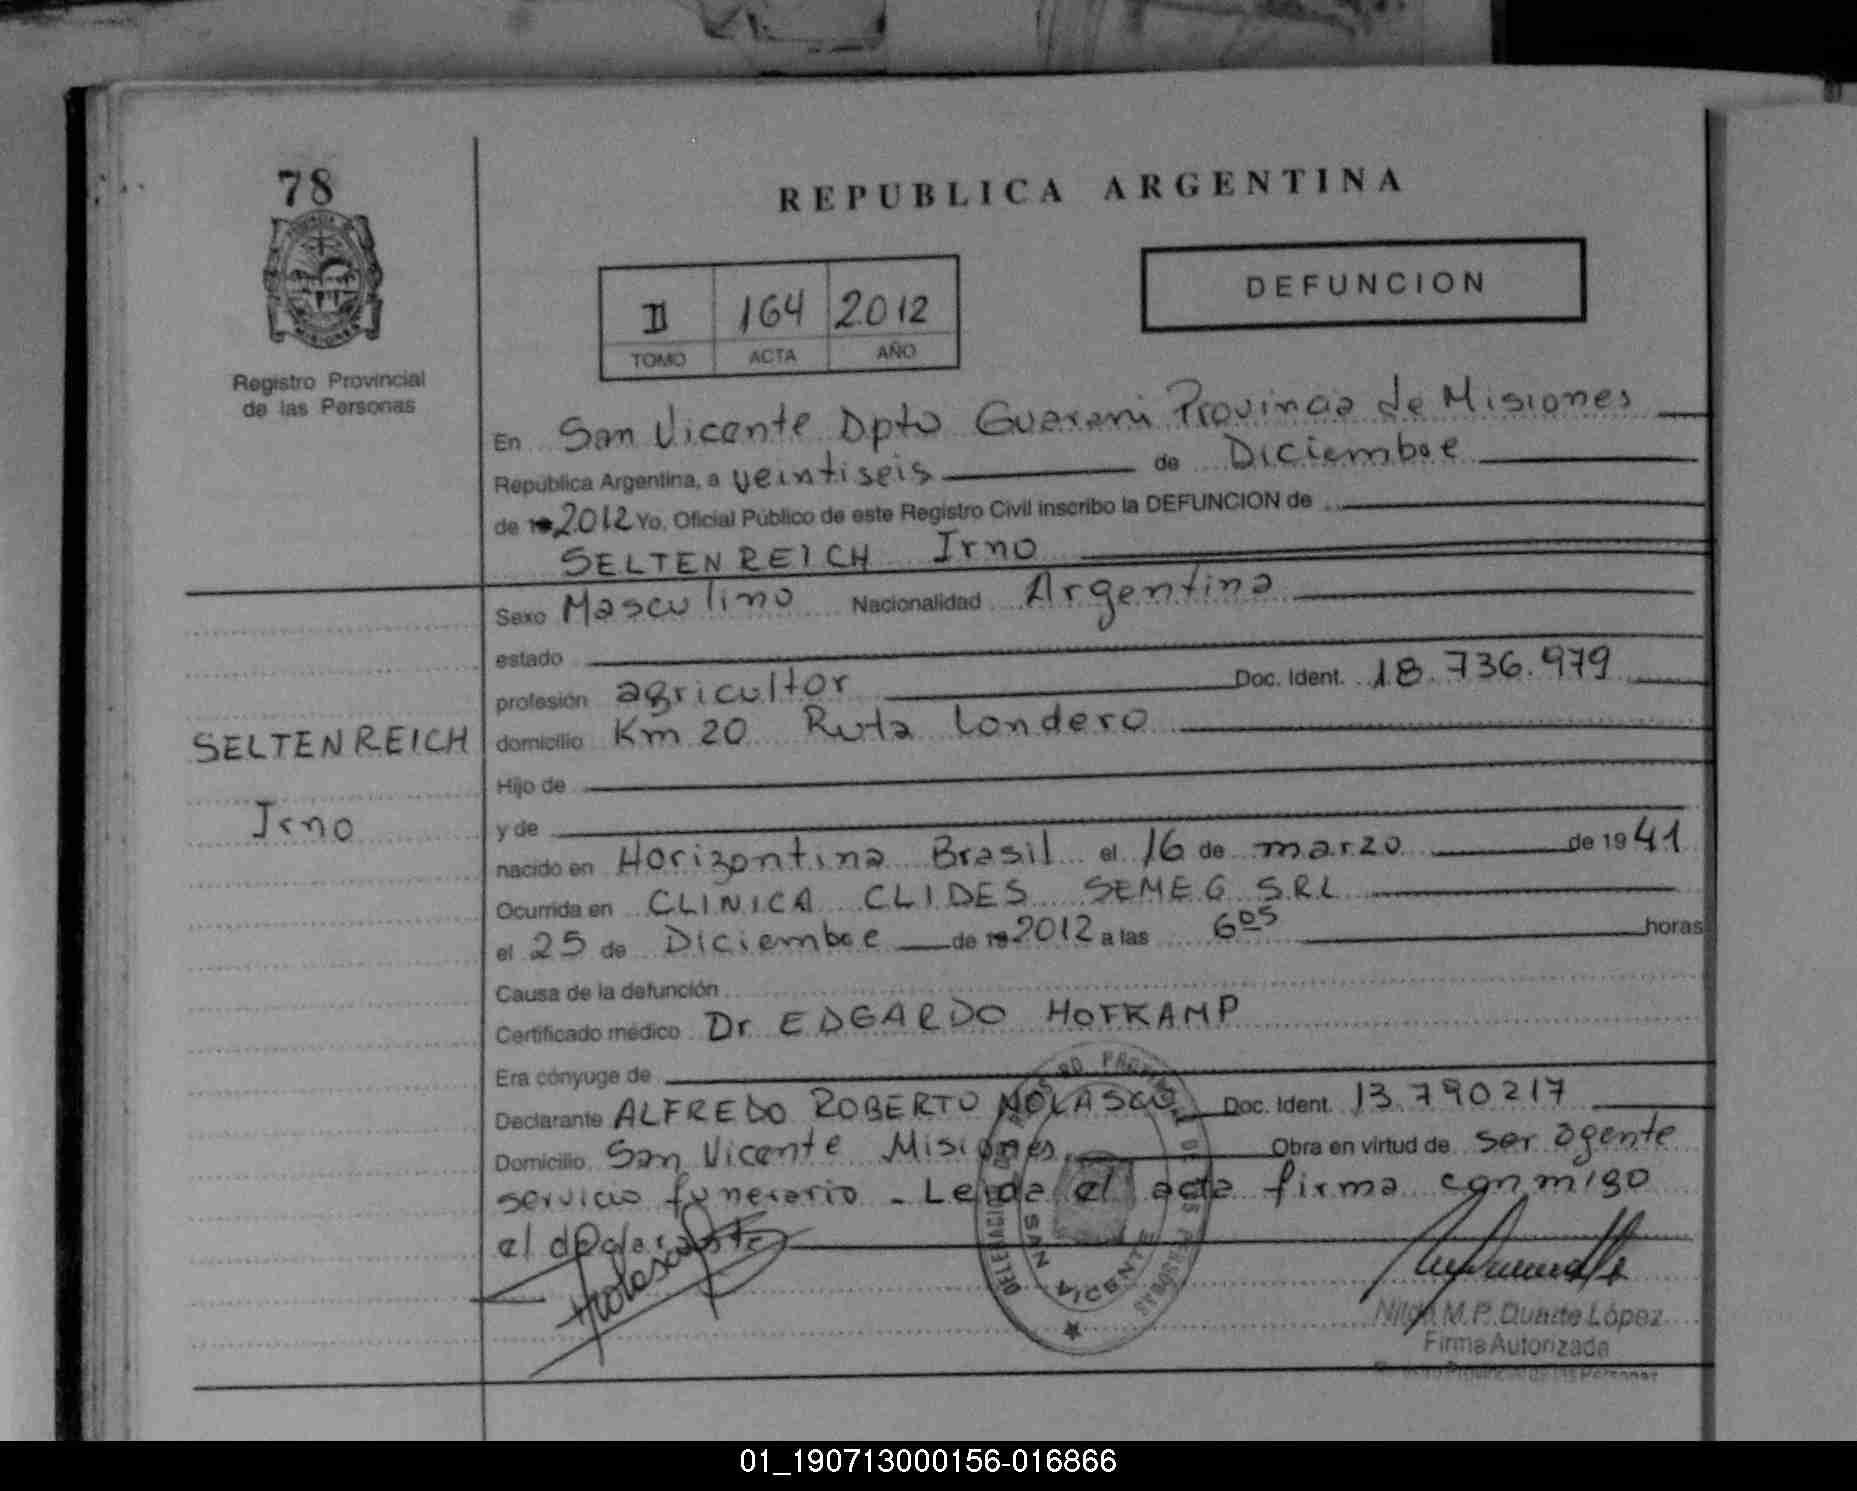 78
REPUBLICA ARGENTINA
II 164 2012
TOMO ACTA AÑO
DEFUNCION
Registro Provincial
de las Personas
En San Vicente Dpto Guarani Provincia de Misiones
República Argentina, a veintiseis de Diciembre
de 19 2012 Yo, Oficial Público de este Registro Civil inscribo la DEFUNCION de
SELTENREICH Irno
Sexo Masculino Nacionalidad Argentina
estado
profesión agricultor Doc. Ident. 18.736.979
SELTENREICH
domicilio Km 20 Ruta Londero
Hijo de
Irno
y de
nacido en Horizontina Brasil el 16 de marzo de 1941
Ocurrida en CLINICA CLIDES SEMEG S.R.L
el 25 de Diciembre de 19 2012 a las 6 05 horas
Causa de la defunción
Certificado médico Dr. EDGARDO HOFKAMP
Era cónyuge de
Declarante ALFREDO ROBERTO NOLASCO Doc. Ident. 13.790217
Domicilio San Vicente Misiones Obra en virtud de ser agente
servicio funerario - Leida el acta firma conmigo
el declarante
SAN VICENTE
Nilda M.P. Duarte López
Firma Autorizada
Registro Provincial de las Personas
01_190713000156-016866